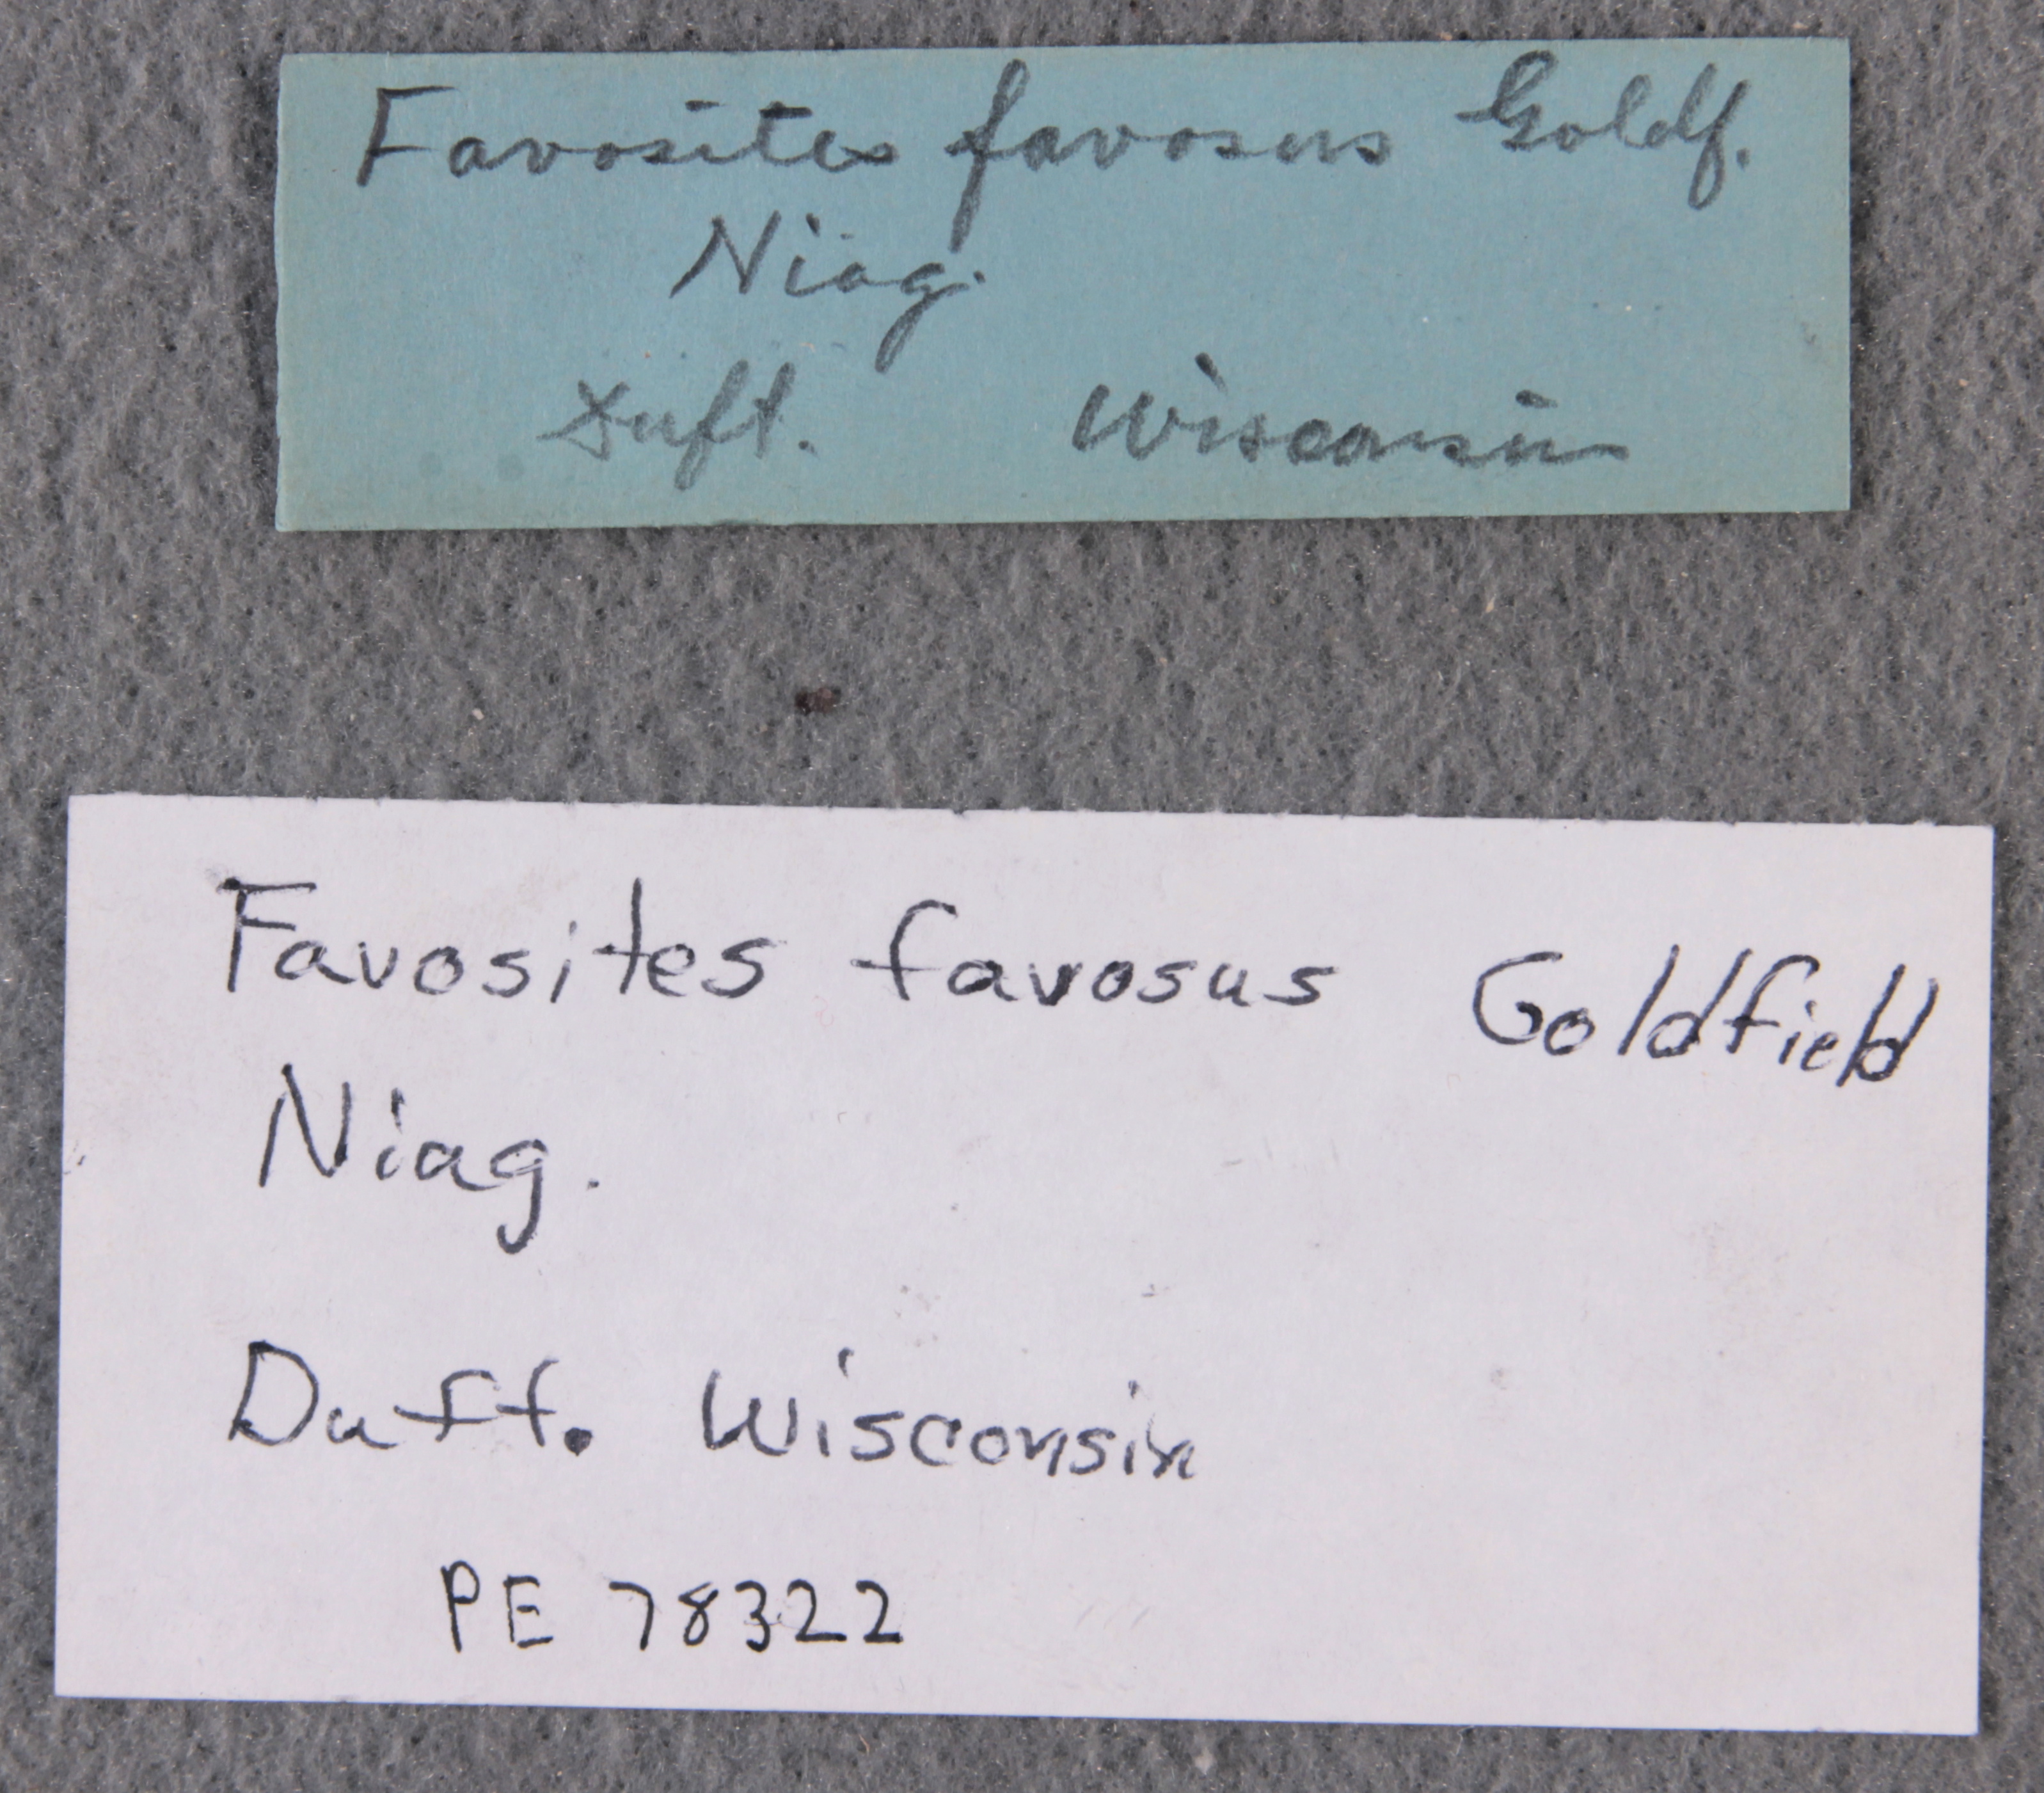 Favosites favosus Goldf.
Niag.
Duft. Wisconsin
Favosites favosus Goldfield
Niag.
Duft. Wisconsin
PE 78322